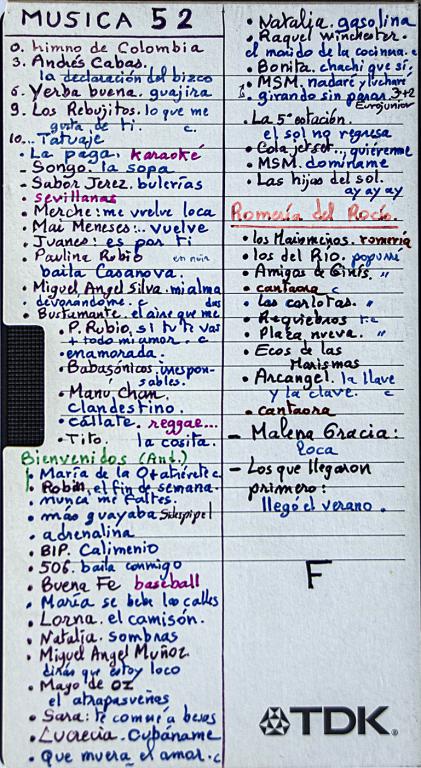 MUSICA 52
0. himno de Colombia
3. Andrés Cabas.
la declaración del bizco
6. Yerba buena. guajira
9. Los Rebujitos. lo que me
gusta de ti. c.
10... Tatuaje
• La paga. karaoké
- Songo. la sopa
- Sabor Jerez. bulerías
• sevillanas
• Merche: me vuelve loca
• Mai Meneses... vuelve
• Juanes: es por ti
• Paulina Rubio
baila Casanova.
• Miguel Angel Silva. mi alma
devorándome. c
• Bustamante. el aire que me das
• P. Rubio. si tu te vas
+ todo mi amor. c
• enamorada.
• Babasónicos. irrespon-
sables.
• Manu Chan.
clandestino.
• cállate. reggae...
• Tito. la cosita.
Bienvenidos (Ant.)
• María de la O + atrévete c
• Robin. el fin de semana.
• nunca me faltes.
• más guayaba
• adrenalina
• BIP. Calimenio
• 506. baila conmigo
• Buena Fe baseball
• María se bebe las calles
• Lorna. el camisón.
• Natalia. sombras
• Miguel Angel Muñoz.
dirás que estoy loco
• Mago de oz
el atrapasueños
• Sara: te comiré a besos
• Lucrecia. Cubáname
• Que muera el amor. c
• Natalia. gasolina
• Raquel Winchester.
el marido de la cocinera. c
• Bonita. chachi que sí.
• MSM. nadaré y lucharé
• girando sin parar. 3+2
Eurojunior
• La 5ª estación.
el sol no regresa
• Cola jetset... quiéreme
• MSM. domíname
• Las hijas del sol.
ay ay ay
Romería del Rocío.
• los Marismeños. romería
• los del Río. popurrí
• Amigos de Ginés. "
• cantaora c
• las carlotas. "
• Requiebros
• Plaza nueva. "
• Ecos de las
Marismas
• Arcangel. la llave
y la clave. c
• cantaora
- Malena Gracia:
loca
- Los que llegaron
primero:
llegó el verano.
F
TDK®